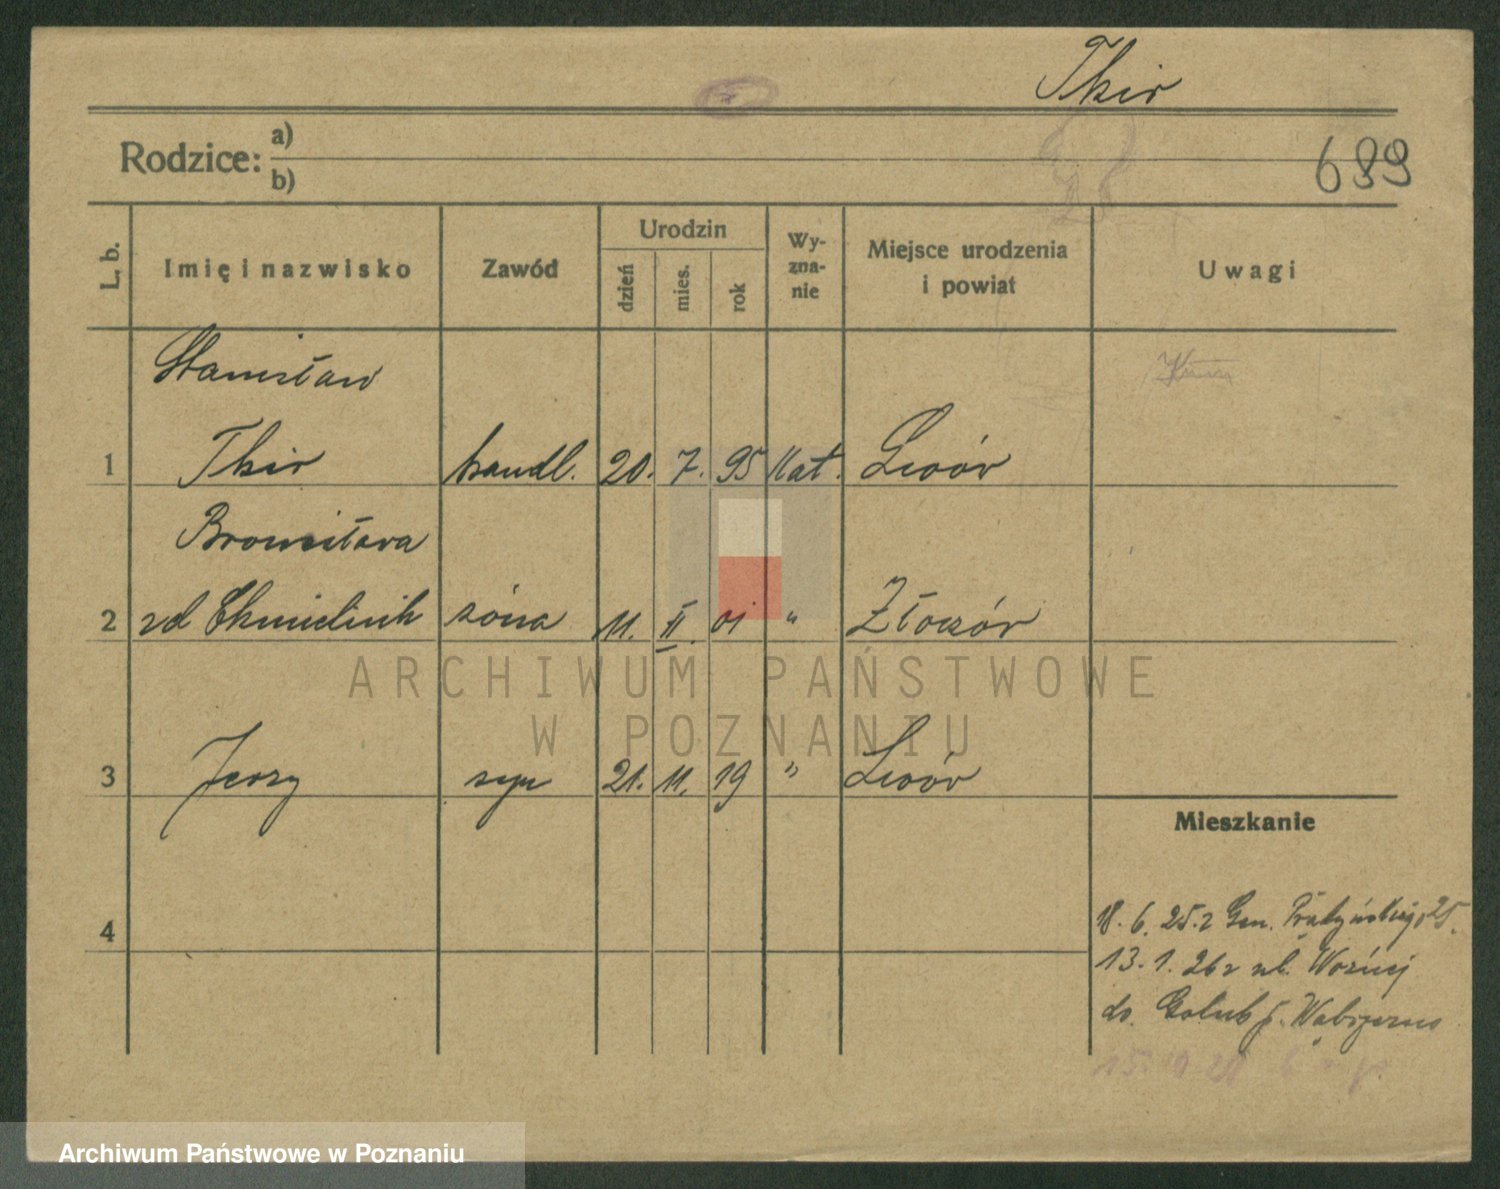 Tkir
Rodzice: a)
b)
689
L. b.
Imię i nazwisko
Zawód
Urodzin
dzień
mies.
rok
Wy-
zna-
nie
Miejsce urodzenia
i powiat
Uwagi
Stanisław
1 Tkir handl. 20. 7. 95 kat. Lwów
Bronisława
2 zd Chmielnik żona 11. II. 01 " Złoczów
3 Jerzy syn 21. 11. 19 " Lwów
Mieszkanie
4
18. 6. 25. z Gen. Prądzyńskiego 25.
13. 1. 26 z ul. Woźnej
do Golub p. Wąbrzeźno
ARCHIWUM PAŃSTWOWE
W POZNANIU
Archiwum Państwowe w Poznaniu